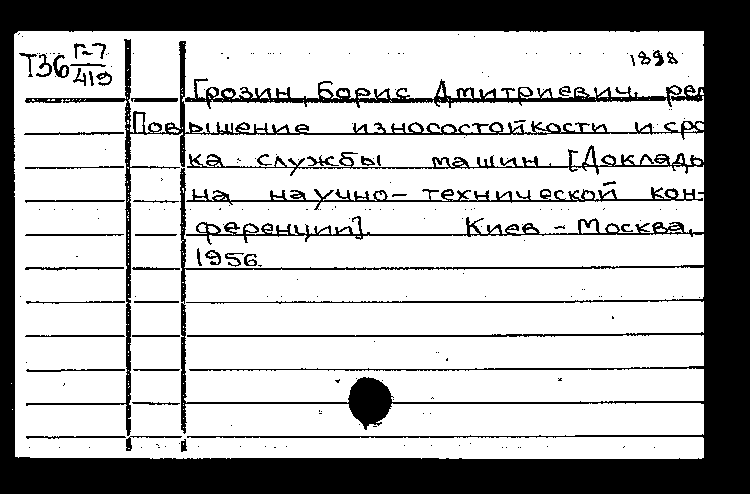 Т36 Г-7
419
1898
Грозин, Борис Дмитриевич, ре
Повышение износостойкости и сро
ка службы машин. [Доклады
на научно-технической кон-
ференции]. Киев - Москва,
1956.